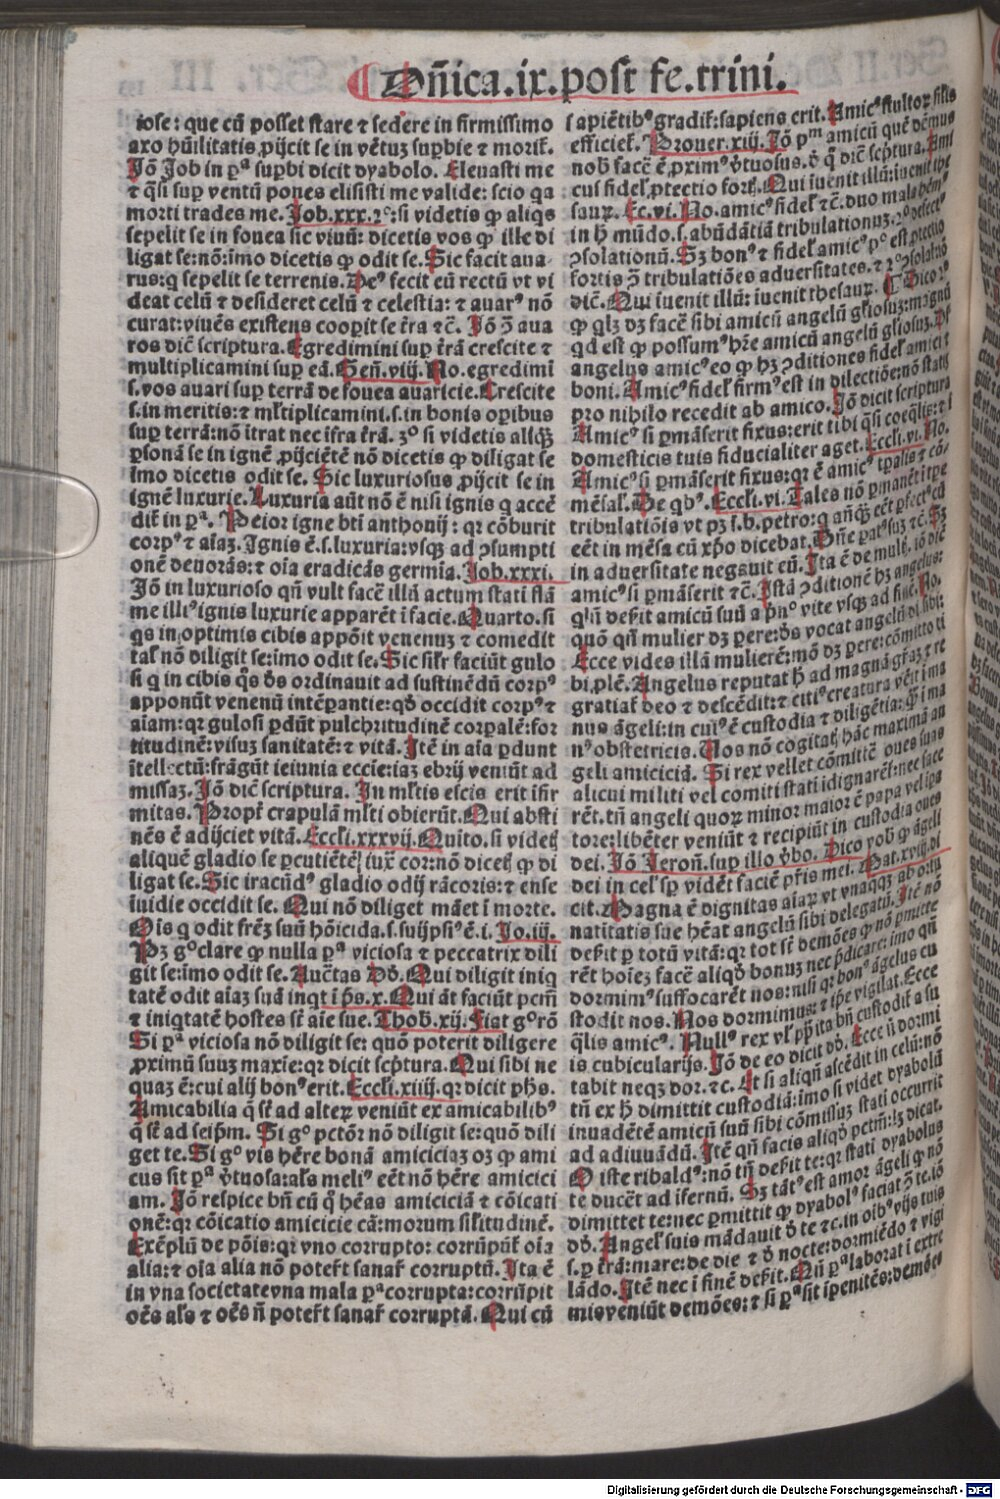 Dñica.ix.post fe.trini.
iose: que cū posset stare ⁊ sedere in firmissimo
axo hūilitatis ꝓijcit se in vētuꝫ suꝑbie ⁊ morit̄.
Jō Job in ꝑᵃ suꝑbi dicit dyabolo. Eleuasti me
⁊ q̄si suꝑ ventū pones elisisti me valide: scio qa
morti trades me. Job.xxx. 2º: si videtis ꝙ aliqs
sepelit se in fouea sic viuū: dicetis vos ꝙ ille di
ligat se: nō: imo dicetis ꝙ odit se. Sic facit aua
rus: q sepelit se terrenis. Deꝰ fecit eū rectū vt vi
deat celū ⁊ desideret celū ⁊ celestia: ⁊ auarꝰ nō
curat: viuēs existens cooꝑit se t̄ra ⁊c̄. Jō ↄ̄ aua
ros dic̄ scriptura. Egredimini suꝑ t̄rā crescite ⁊
multiplicamini suꝑ eā. Gen̄.viij. No. egredimī
.s. vos auari suꝑ terrā de fouea auaricie. Crescite
.s. in meritis: ⁊ ml̄tiplicamini .s. in bonis oꝑibus
suꝑ terrā: nō ītrat nec īfra t̄rā. 3º si videtis aliq̄ꝫ
ꝑsonā se in ignē ꝓijciētē nō dicetis ꝙ diligat se
īmo dicetis odit se. Sic luxuriosus ꝓijcit se in
ignē luxurie. Luxuria aūt nō ē nisi ignis q accē
dit̄ in ꝑᵃ. Peior igne bt̄i anthonij: qꝛ cōburit
corpꝰ ⁊ aīaꝫ. Ignis ē .s. luxuria: vsqꝫ ad ↄsumpti
onē deuorās: ⁊ oīa eradicās germīa. Job.xxxi.
Jō in luxurioso qn̄ vult facē illū actum stati flā
me illiꝰ ignis luxurie apparēt ī facie. Quarto. si
qs in optimis cibis appōit venenuꝫ ⁊ comedit
tal̄ nō diligit se: imo odit se. Sic sil̄r faciūt gulo
si q in cibis q̄s dn̄s ordinauit ad sustinēdū corpꝰ
apponūt venenū intēꝑantie: qd̄ occidit corpꝰ ⁊
aīam: qꝛ gulosi ꝑdūt pulchritudinē corꝑalē: for
titudinē: visuꝫ sanitatē: ⁊ vitā. Itē in aīa ꝑdunt
ītellectū: frāgūt ieiunia ecc̄ie: iaꝫ ebrij veniūt ad
missaꝫ. Jō dic̄ scriptura. In ml̄tis escis erit īfir
mitas. Propt̄ crapulā ml̄ti obierūt. Qui absti
nēs ē adijciet vitā. Eccl̄i.xxxvij. Quīto. si videt̄
aliquē gladio se ꝑcutiētē iux̄ cor: nō dicet̄ ꝙ di
ligat se. Sic iracūdꝰ gladio odij rācoris: ⁊ ense
īuidie occidit se. Qui nō diliget māet ī morte.
Ois q odit fr̄eꝫ suū hōicida .s. suijpsiꝰ ē .i. Jo.iij.
Pꝫ gº clare ꝙ nulla ꝑᵃ viciosa ⁊ peccatrix dili
git se: īmo odit se. Auctas Dd̄. Qui diligit iniq
tatē odit aīaꝫ suā inqt ī ps̄.x. Qui āt faciūt pctm̄
⁊ iniqtatē hostes st̄ aīe sue. Thob.xij. Fiat gº rō
Si ꝑᵃ viciosa nō diligit se: quō poterit diligere
ꝓximū suuꝫ maxīe: qꝛ dicit scp̄tura. Qui sibi ne
quaꝫ ē: cui alij bonꝰ erit. Eccl̄i.xiiij. qꝛ dicit ph̄s.
Amicabilia q̄ st̄ ad alteꝝ veniūt ex amicabilibꝰ
q̄ st̄ ad seip̄m. Si gº pctōr nō diligit se: quō dili
get te. Si gº vis hēre bonā amiciciaꝫ oꝫ ꝙ ami
cus sit ꝑᵃ v̄tuosa: al̄s meliꝰ eēt nō hēre amicici
am. Jō respice bn̄ cū q̄ hēas amiciciā ⁊ cōicati
onē: qꝛ cōicatio amicicie cā: morum sil̄itudinē.
Exēplū de pōis: qꝛ vno corrupto: corrūpūt̄ oīa
alia: ⁊ oīa alia nō potest sanar̄ corruptū. Ita ē
in vna societate vna mala ꝑᵃ corrupta: corrūpit
oēs al̄s ⁊ oēs n̄ potest sanar̄ corruptā. Qui cū
sapiētibꝰ gradit̄: sapiens erit. Amicꝰ stultoꝝ sil̄is
efficiet̄. Prouer.xiij. Jō pᵐ amicū quē dēmus
nob̄ facē ē ꝓximꝰ v̄tuosus. d̄ q̄ dic̄ scp̄tura. Ami
cus fidel̄ ꝓtectio fort̄. Qui īuenit illū: īuenit the
sauꝝ. Ec.vi. No. amicꝰ fidel̄ ⁊c̄. duo mala hēmꝰ
in h̄ mūdo .s. abūdātiā tribulationuꝫ. 2º defectꝰ
ↄsolationū. Sꝫ bonꝰ ⁊ fidel̄ amicꝰ pº est ꝓtectio
fortis ↄ̄ tribulatiōes aduersitates. ⁊ 2º ↄsolatiō
dic̄. Qui īuenit illū: īuenit thesauꝝ. ¶ Dico 2º
ꝙ qlꝫ dꝫ facē sibi amicū angelū gl̄iosuꝫ: magnū
qd est ꝙ possumꝰ hr̄e amicū angelū gl̄iosuꝫ.
angelus amicꝰ eo ꝙ hꝫ ↄditiones fidel̄ amici ⁊
boni. Amicꝰ fidel̄ firmꝰ est in dilectiōe: nō statī
pro nihilo recedit ab amico. Jō dicit scriptura
Amicꝰ si ꝑmāserit fixus: erit tibi q̄si coeq̄lis: ⁊ ī
domesticis tuis fiducialiter aget. Eccl̄i.vi. No.
Amicꝰ si ꝑmāserit fixus: qꝛ ē amicꝰ tꝑalis ⁊ cō
mēsal̄. De qbꝰ. Eccl̄i.vi. Tales nō ꝑmanēt ī tꝑe
tribulatiōis vt pꝫ .s. b. petro: q añq̄ꝫ eēt ꝑfectꝰ cū
eēt in mēsa cū xp̄o dicebat. Dn̄e paratꝰ suꝫ ⁊c̄. Sꝫ
in aduersitate negauit eū. Ita ē de mult̄. iō dic̄
amicꝰ si ꝑmāserit ⁊c̄. Istā ↄditionē hꝫ angelus:
qn̄ dep̄it amicū suū a pn̄º vite vsqꝫ ad finē. No.
quō qn̄ mulier dꝫ ꝑere: dn̄s vocat angelū di sibi:
Ecce vides illā mulierē: mō dꝫ ꝑere: cōmitto ti
bi ꝓlē. Angelus reputat h̄ ad magnā gr̄aꝫ ⁊ re
gratiat̄ deo ⁊ descēdit: ⁊ citiꝰ creatura venit ī ma
nus āgeli: in cuiꝰ ē custodia ⁊ diligētia: q̄ ī ma
nꝰ obstetricis. Nos nō cogitat̄ hāc maximā an
geli amiciciā. Si rex vellet cōmittē oues suas
alicui militi vel comiti stati īdignaret̄: nec face
rēt. tn̄ angeli quoꝝ minor maior ē papa velips
tore: libēter veniūt ⁊ recipiūt in custodia oues
dei. Jō Ieron̄. suꝑ illo v̄bo. Dico vob̄ ꝙ āgeli
dei in cel̄ sꝑ vidēt faciē pr̄is mei. Mat.xviij. di
cit. Magna ē dignitas aīaꝝ vt vnaqqꝫ ab ortu
natitatis sue hēat angelū sibi delegatū. Itē nō
dep̄it ꝑ totū vitā: qꝛ tot st̄ demōes ꝙ nō ꝑmitte
rēt hoīeꝫ facē aliqd̄ bonuꝫ nec p̄dicare: imo qn̄
dormimꝰ suffocarēt nos: nisi qꝛ bonꝰ āgelus cu
stodit nos. Nos dormimus: ⁊ ip̄e vigilat. Ecce
q̄lis amicꝰ. Nullꝰ rex vl̄ pp̄ita bn̄ custodit̄ a su
is cubicularijs. Jō de eo dicit dd̄. Ecce n̄ dormi
tabit neqꝫ dor. ⁊c. Et si aliqn̄ ascēdit in celū: nō
tn̄ ex h̄ dimittit custodiā: imo si videt dyabolū
inuadētē amicū suū sibi cōmissuꝫ statī occurrit
ad adiuuādū. Itē qn̄ facis aliqd̄ pctm̄: lꝫ dicat.
O iste ribaldꝰ: nō tn̄ dep̄it te: qꝛ stati dyabolus
te ducēt ad īfernū. Sꝫ tātꝰ est amor āgeli ꝙ nō
dimittet te: nec ꝑmittit ꝙ dyabolꝰ faciat ↄ̄ te. iō
dd̄. Angel̄ suis mādauit d̄ te ⁊c. in oibꝰ vijs tuis
.s. ꝑ t̄rā: mare: de die ⁊ d̄ nocte: dormiēdo ⁊ vigi
lādo. Itē nec ī finē dep̄it. Qn̄ ꝑᵃ laborat ī extre
mis veniūt demōes: ⁊ si ꝑᵃ sit īpenitēs: demōes
Digitalisierung gefördert durch die Deutsche Forschungsgemeinschaft - DFG